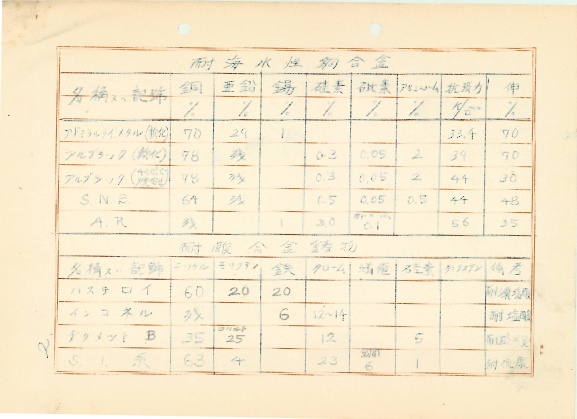 耐海水性銅合金
名称又ハ記號 銅 亜鉛 錫 硅素 砒素 アルミニューム 抗張力 伸
% % % % % % %
アドミラルティメタル(軟化) 70 29 1 33.4 70
アルブラック(軟化) 78 残 0.3 0.05 2 39 70
アルブラック 78 残 0.3 0.05 2 44 30
S.N.B. 64 残 0.5 0.05 0.5 44 48
A.R 残 1 3.0 0.1 56 35
耐酸合金鋳物
名称又ハ記號 ニッケル モリブデン 鉄 クローム 満俺 硅素 タングステン 備考
ハステロイ 60 20 20 耐濃塩酸
インコネル 残 6 12~14 耐塩酸
B 35 コバルト 25 12 5
S.I.系 63 4 23 6 1
2.